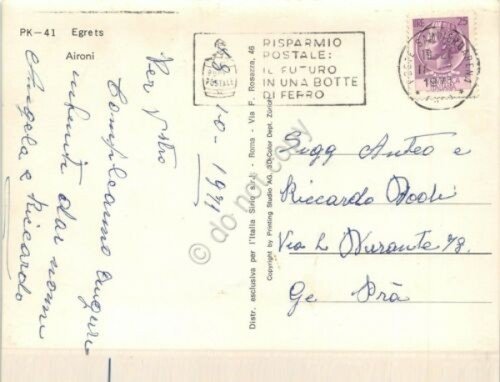 PK-41 Egrets
Aironi
8-10-1971
Per vostro
Compleanno auguri
infiniti dai nonni
Angela e Riccardo
Distr. esclusiva per l'Italia Sirio s.r.l. - Roma - Via F. Rosazza, 46
Copyright by Printing Studio AG, 3D-Color Dept. Zürich
RISPARMIO
POSTALE:
IL FUTURO
IN UNA BOTTE
DI FERRO
25
1971
Sigg Anteo e
Riccardo
Via L Durante
Ge Prà
do not copy